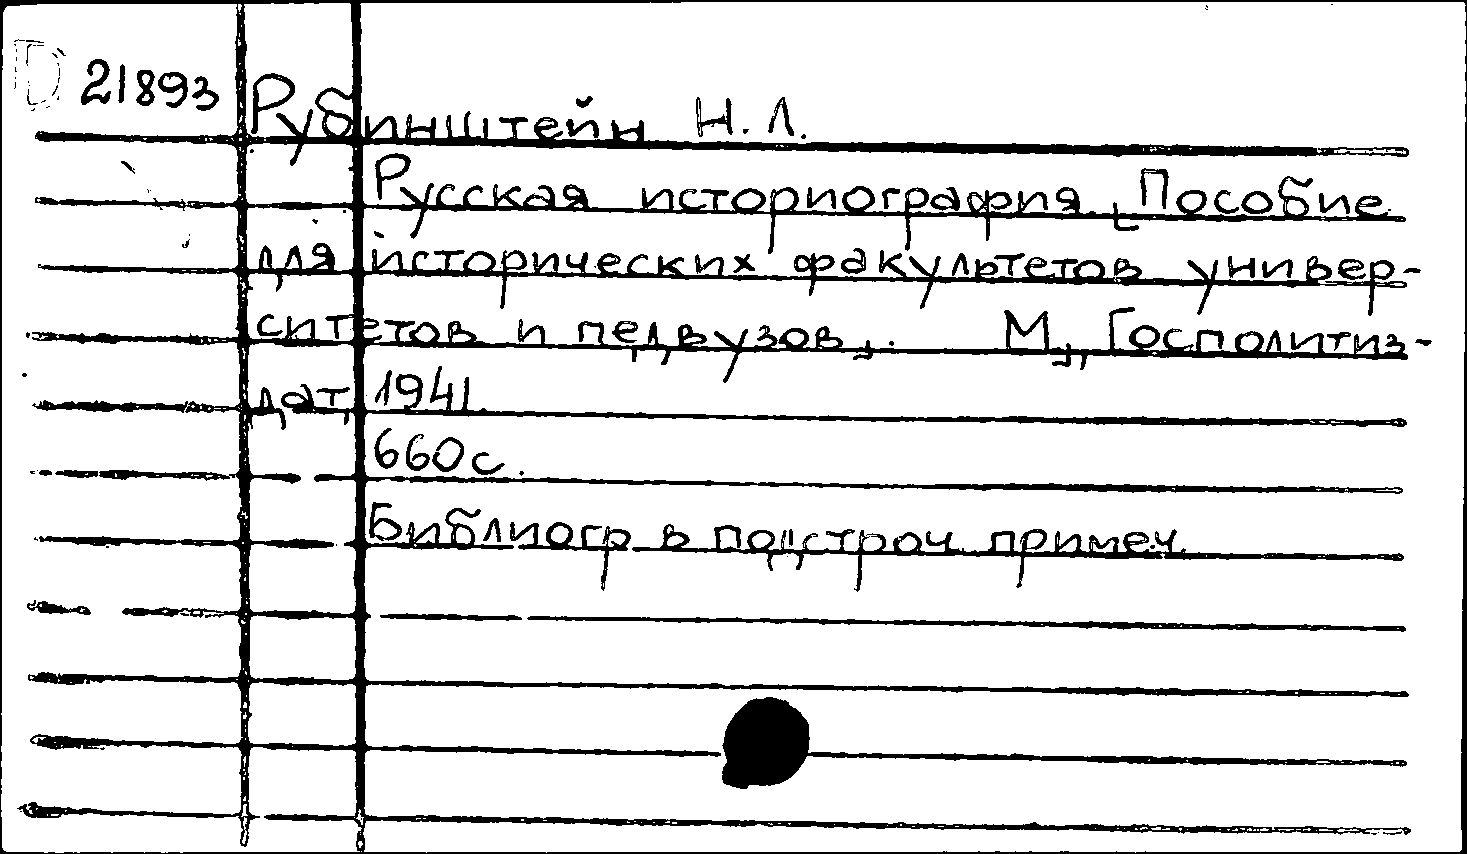 D 21893 Рубинштейн Н. Л.
Русская историография. [Пособие
для исторических факультетов универ-
ситетов и педвузов]. М., Госполитиз-
дат, 1941.
660 с.
Библиогр в подстроч. примеч.